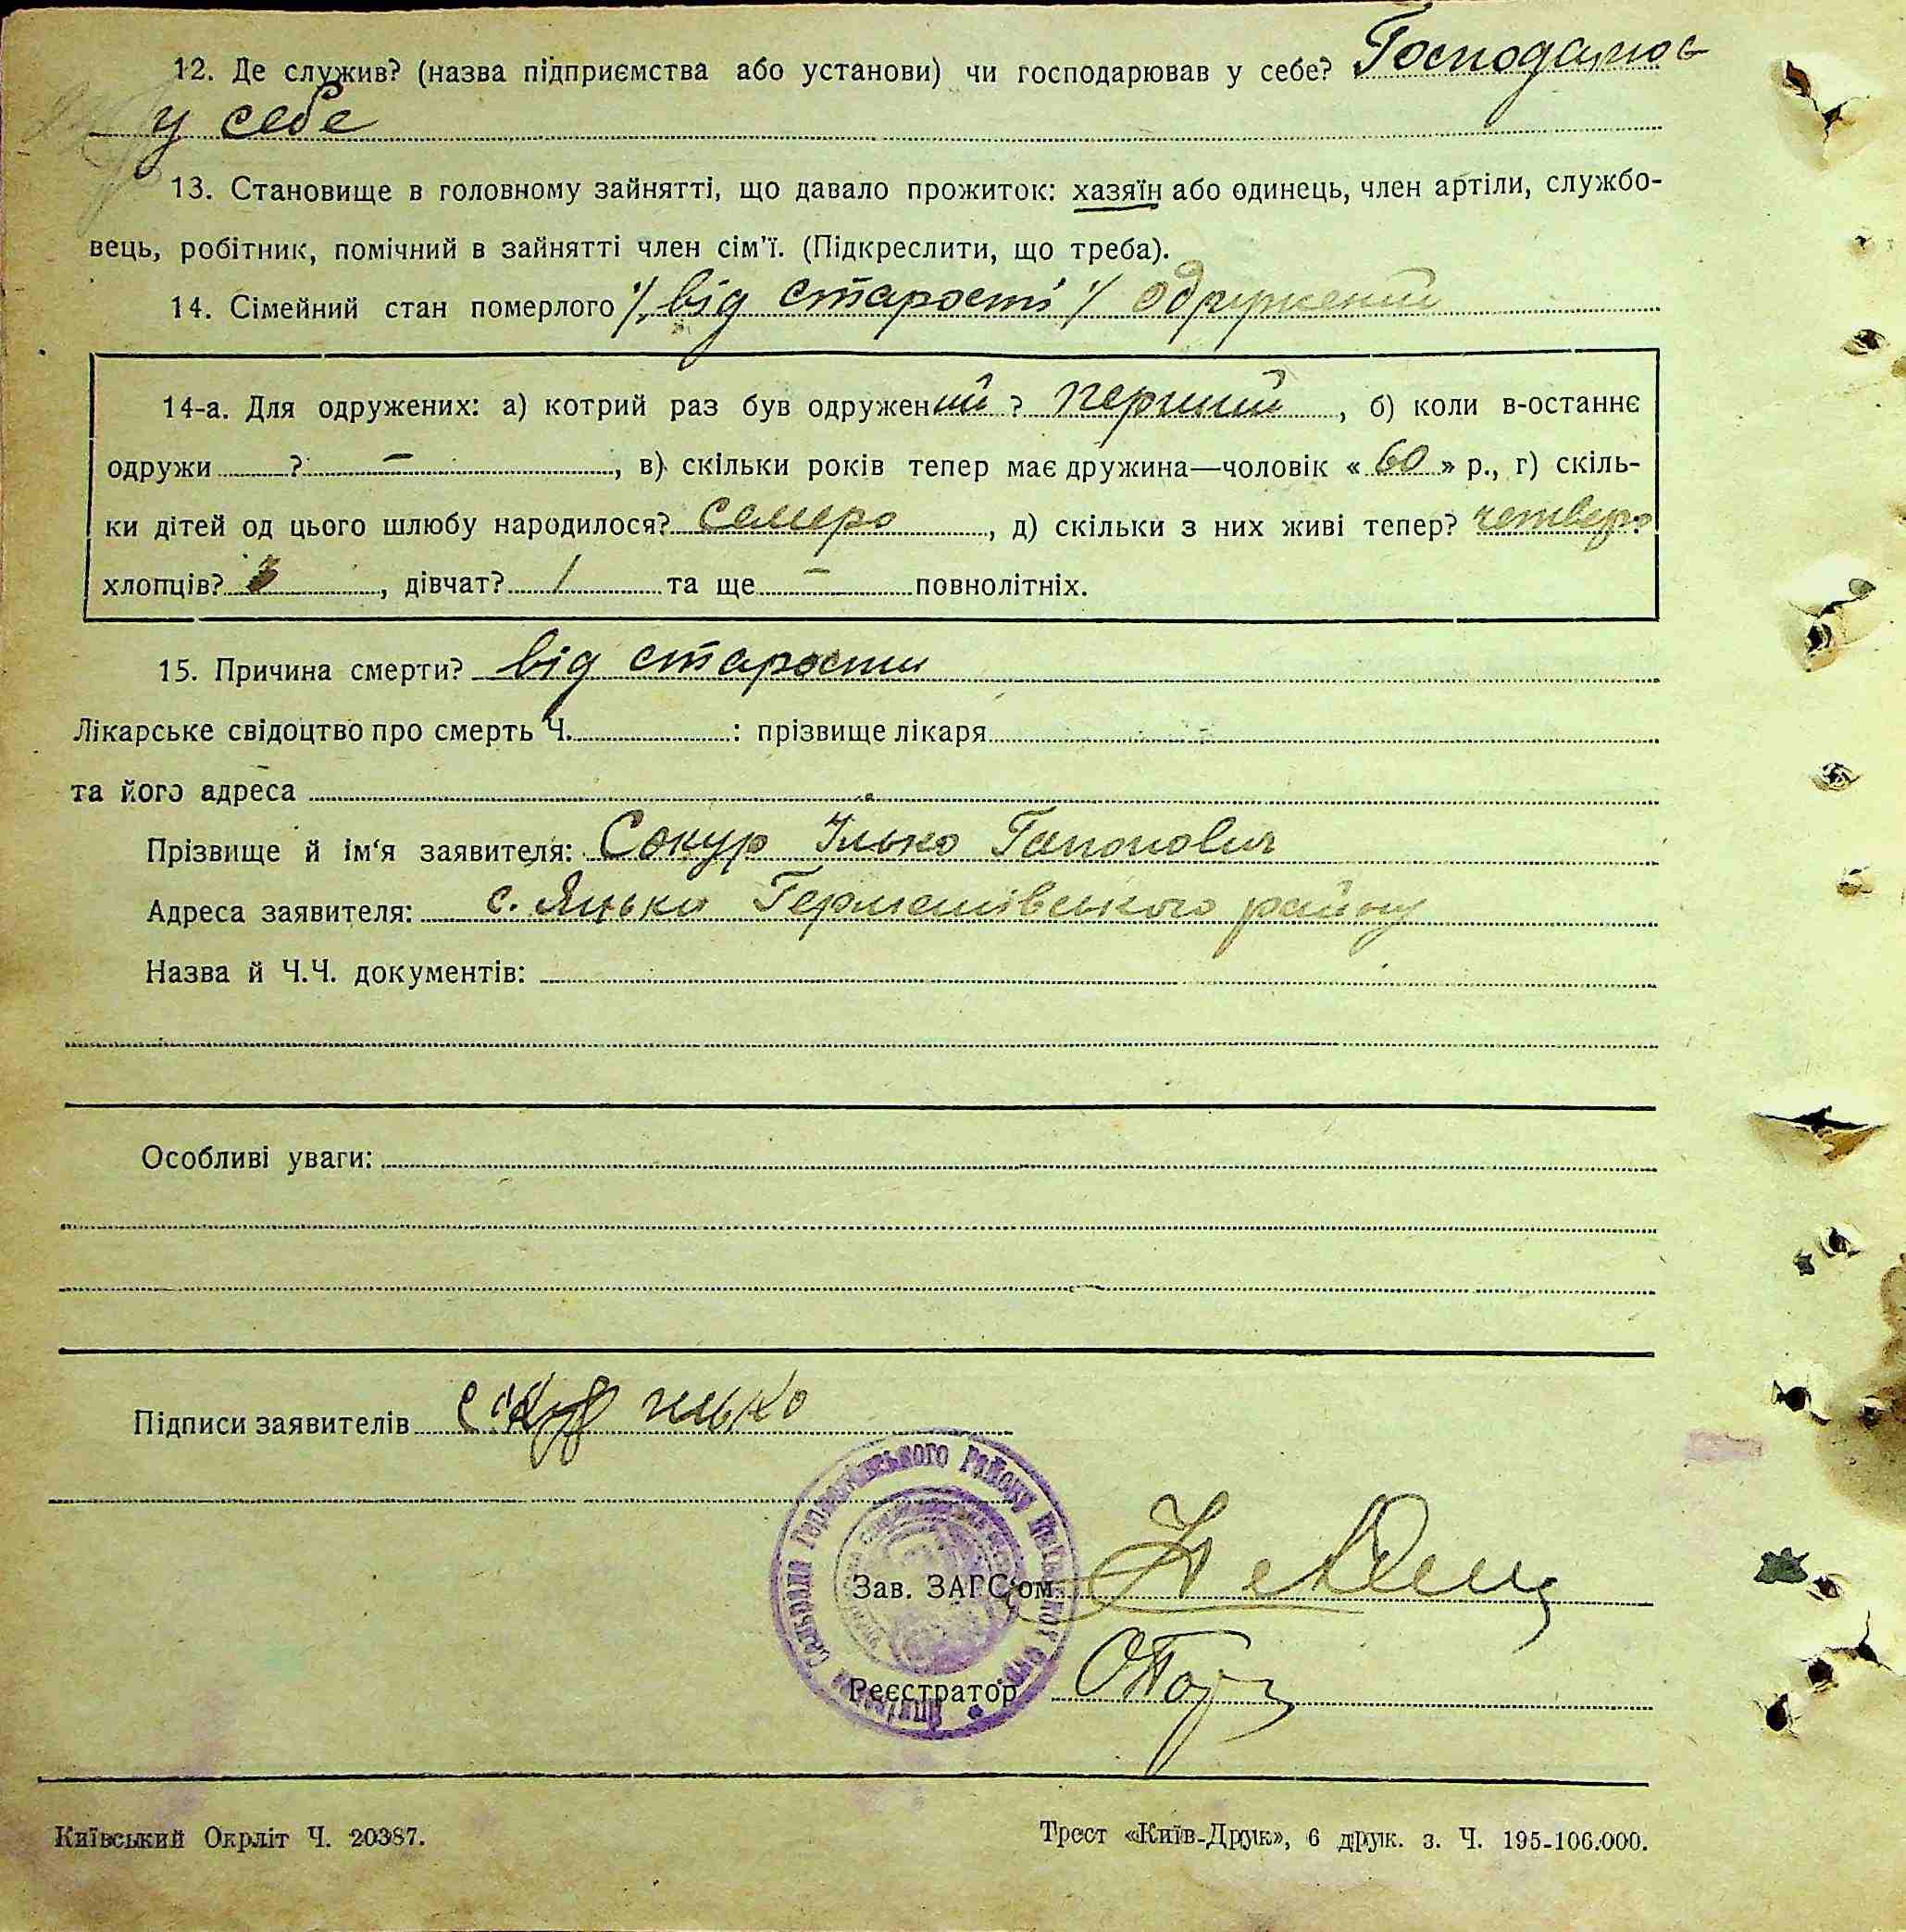 12. Де служив? (назва підприємства або установи) чи господарював у себе? Господарює
у себе
13. Становище в головному зайнятті, що давало прожиток: хазяїн або одинець, член артіли, службо-
вець, робітник, помічний в зайнятті член сім'ї. (Підкреслити, що треба).
14. Сімейний стан померлого від старості одружений
14-а. Для одружених: а) котрий раз був одружений? перший, б) коли в-останнє
одружи ? –, в) скільки років тепер має дружина—чоловік « 60 » р., г) скіль-
ки дітей од цього шлюбу народилося? семеро, д) скільки з них живі тепер? четверо
хлопців? 3, дівчат? 1 та ще – повнолітніх.
15. Причина смерти? від старости
Лікарське свідоцтво про смерть Ч. : прізвище лікаря
та його адреса
Прізвище й ім'я заявителя: Сокур Ілько Гапонович
Адреса заявителя: с. Яцьки Германівського району
Назва й Ч.Ч. документів:
Особливі уваги:
Підписи заявителів Сокур илько
Зав. ЗАГС'ом
Реєстратор
Київський Окрліт Ч. 20387.
Трест «Київ-Друк», 6 друк. з. Ч. 195-106.000.